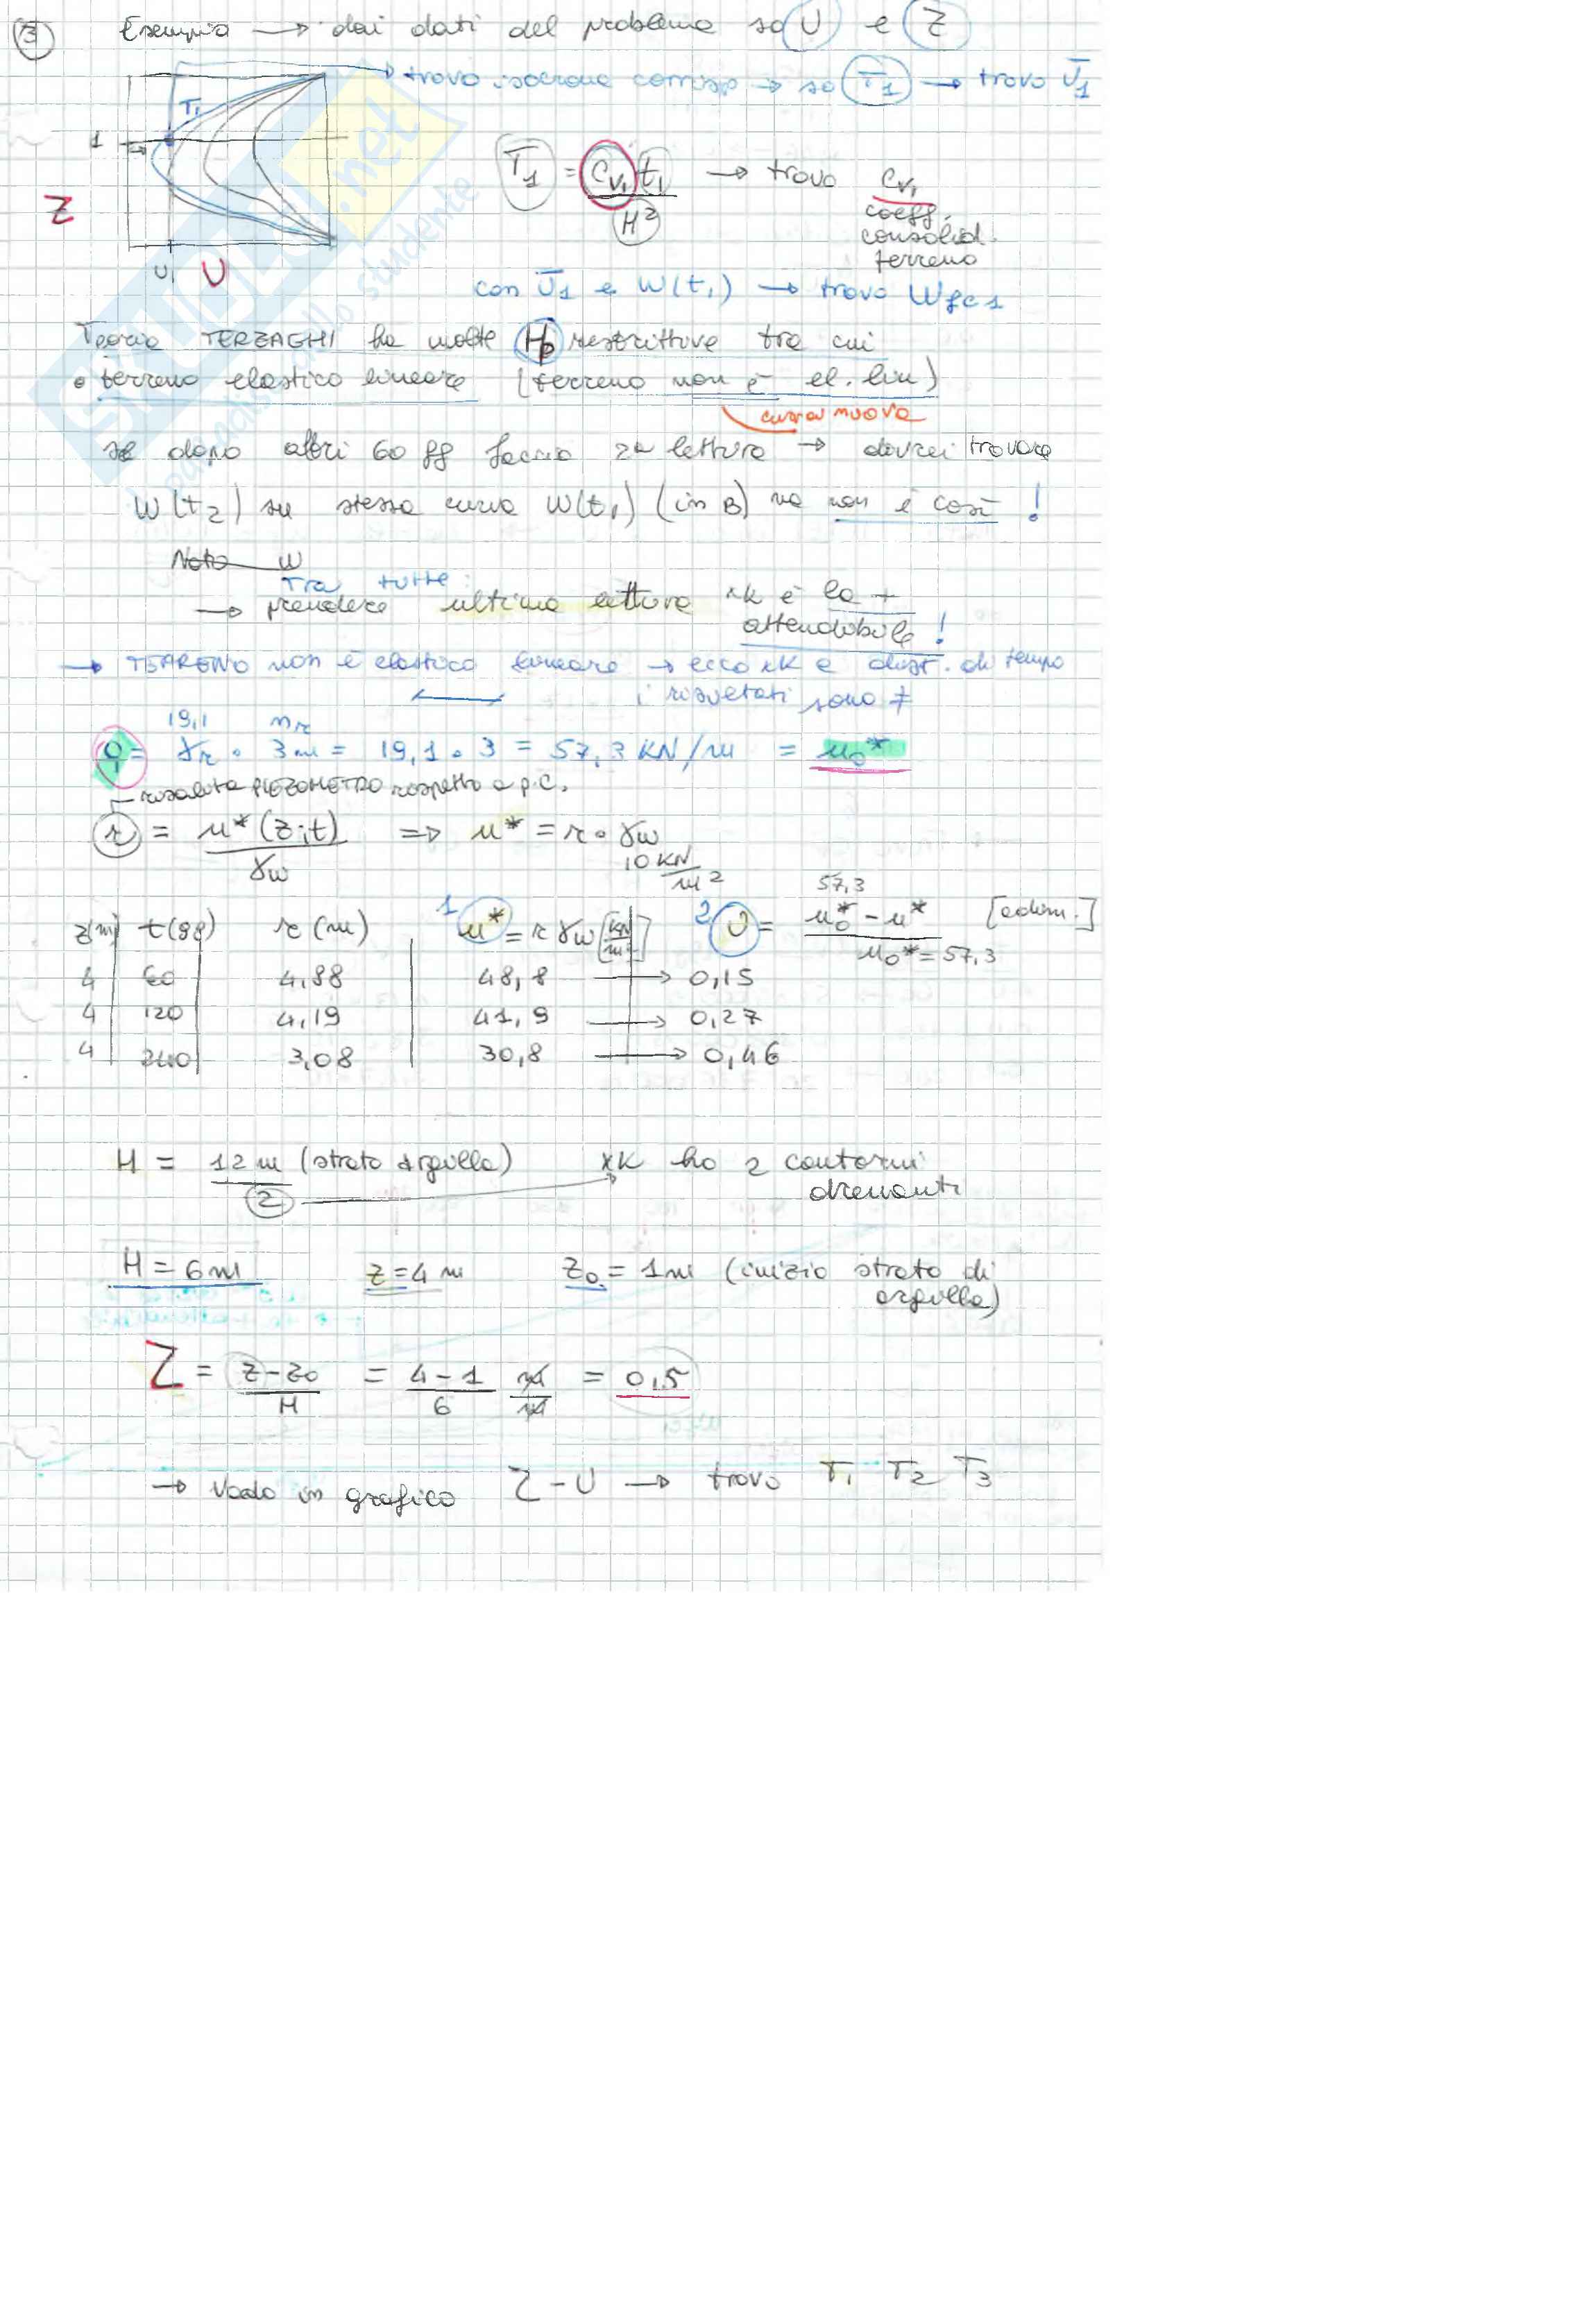 3 Esempio → dai dati del problema so U e Z
→ trovo isocrona corrisp → so T1 → trovo Ū1
T1
1
Z
U1 U
T1 = Cv1 t1 / H² → trovo Cv1
coeff.
consolid.
terreno
con Ū1 e W(t1) → trovo Wfc1
Teoria TERZAGHI ha molte Hp restrittive tra cui
• terreno elastico lineare (terreno non è el. lin)
curva nuova
se dopo altri 60 gg faccio 2a lettura → dovrei trovare
W(t2) su stessa curva W(t1) (in B) ma non è così!
Nota W
Tra tutte:
→ prendere ultima lettura xk è la +
attendibile!
→ TERRENO non è elastico lineare → ecco xk a dist. di tempo
i risultati sono ≠
19,1 mr
q = γr · 3m = 19,1 · 3 = 57,3 KN/m = u0*
risalita PIEZOMETRO rispetto a p.c.
r = u*(z;t) / γw ⇒ u* = r · γw
10 KN/m²
z(m) t(gg) r(m) 1 u* = r γw [KN/m²] 2 U = u0* - u* / u0* = 57,3 [adim.]
57,3
4 60 4,88 48,8 → 0,15
4 120 4,19 41,9 → 0,27
4 240 3,08 30,8 → 0,46
H = 12m (strato argilla) / 2 xk ho 2 contorni
drenanti
H = 6m z = 4 m z0 = 1m (inizio strato di
argilla)
Z = z-z0 / H = 4-1 / 6 m/m = 0,5
→ Vado in grafico Z - U → trovo T1 T2 T3
SKUOLA.net
paradiso dello studente